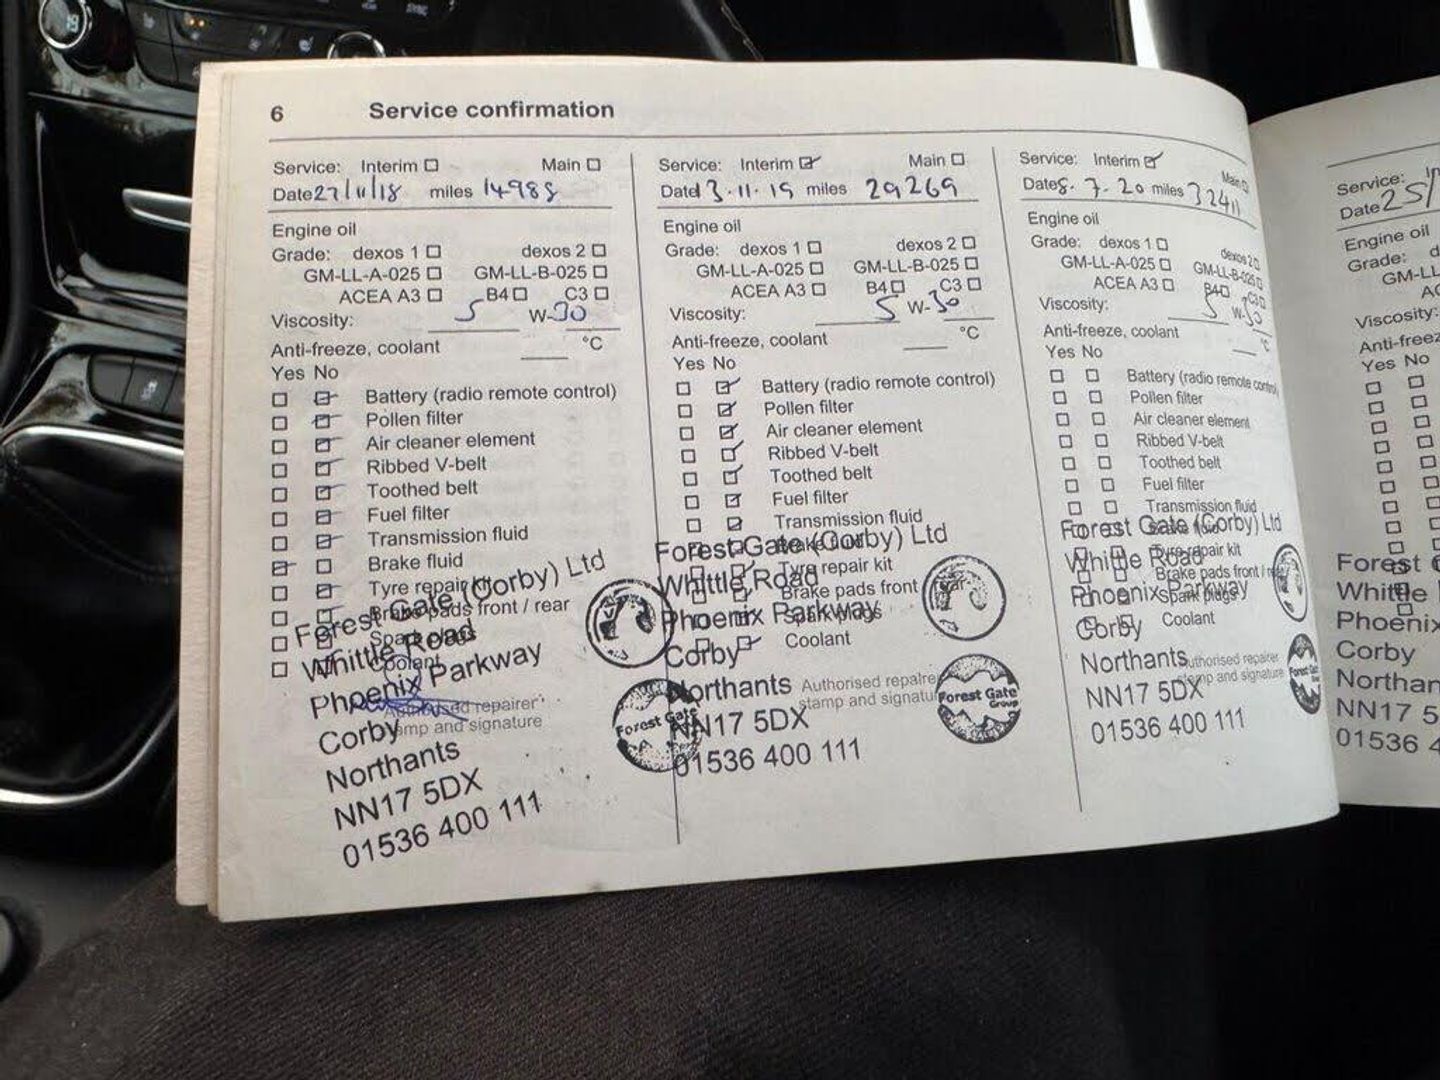 6 Service confirmation
Service: Interim Main
Date 27/11/18 miles 14988
Engine oil
Grade: dexos 1 dexos 2
GM-LL-A-025 GM-LL-B-025
ACEA A3 B4 C3
Viscosity: 5 W-30
Anti-freeze, coolant °C
Yes No
Battery (radio remote control)
Pollen filter
Air cleaner element
Ribbed V-belt
Toothed belt
Fuel filter
Transmission fluid
Brake fluid
Tyre repair kit
Brake pads front / rear
Spark plugs
Coolant
Authorised repairer
stamp and signature
Forest Gate (Corby) Ltd
Whittle Road
Phoenix Parkway
Corby
Northants
NN17 5DX
01536 400 111
Forest Gate
Service: Interim Main
Date 13.11.19 miles 29269
Engine oil
Grade: dexos 1 dexos 2
GM-LL-A-025 GM-LL-B-025
ACEA A3 B4 C3
Viscosity: 5 W-30
Anti-freeze, coolant °C
Yes No
Battery (radio remote control)
Pollen filter
Air cleaner element
Ribbed V-belt
Toothed belt
Fuel filter
Transmission fluid
Brake fluid
Tyre repair kit
Brake pads front / rear
Spark plugs
Coolant
Authorised repairer
stamp and signature
Forest Gate (Corby) Ltd
Whittle Road
Phoenix Parkway
Corby
Northants
NN17 5DX
01536 400 111
Forest Gate
Group
Service: Interim Main
Date 8.7.20 miles 32411
Engine oil
Grade: dexos 1 dexos 2
GM-LL-A-025 GM-LL-B-025
ACEA A3 B4 C3
Viscosity: 5 W-30
Anti-freeze, coolant °C
Yes No
Battery (radio remote control)
Pollen filter
Air cleaner element
Ribbed V-belt
Toothed belt
Fuel filter
Transmission fluid
Tyre repair kit
Brake pads front / rear
Spark plugs
Coolant
Authorised repairer
stamp and signature
Forest Gate (Corby) Ltd
Whittle Road
Phoenix Parkway
Corby
Northants
NN17 5DX
01536 400 111
Forest Gate
Service: In
Date 25/
Engine oil
Grade: d
GM-LL
AC
Viscosity:
Anti-freez
Yes No
Forest G
Whittle
Phoenix
Corby
Northan
NN17 5
01536 4